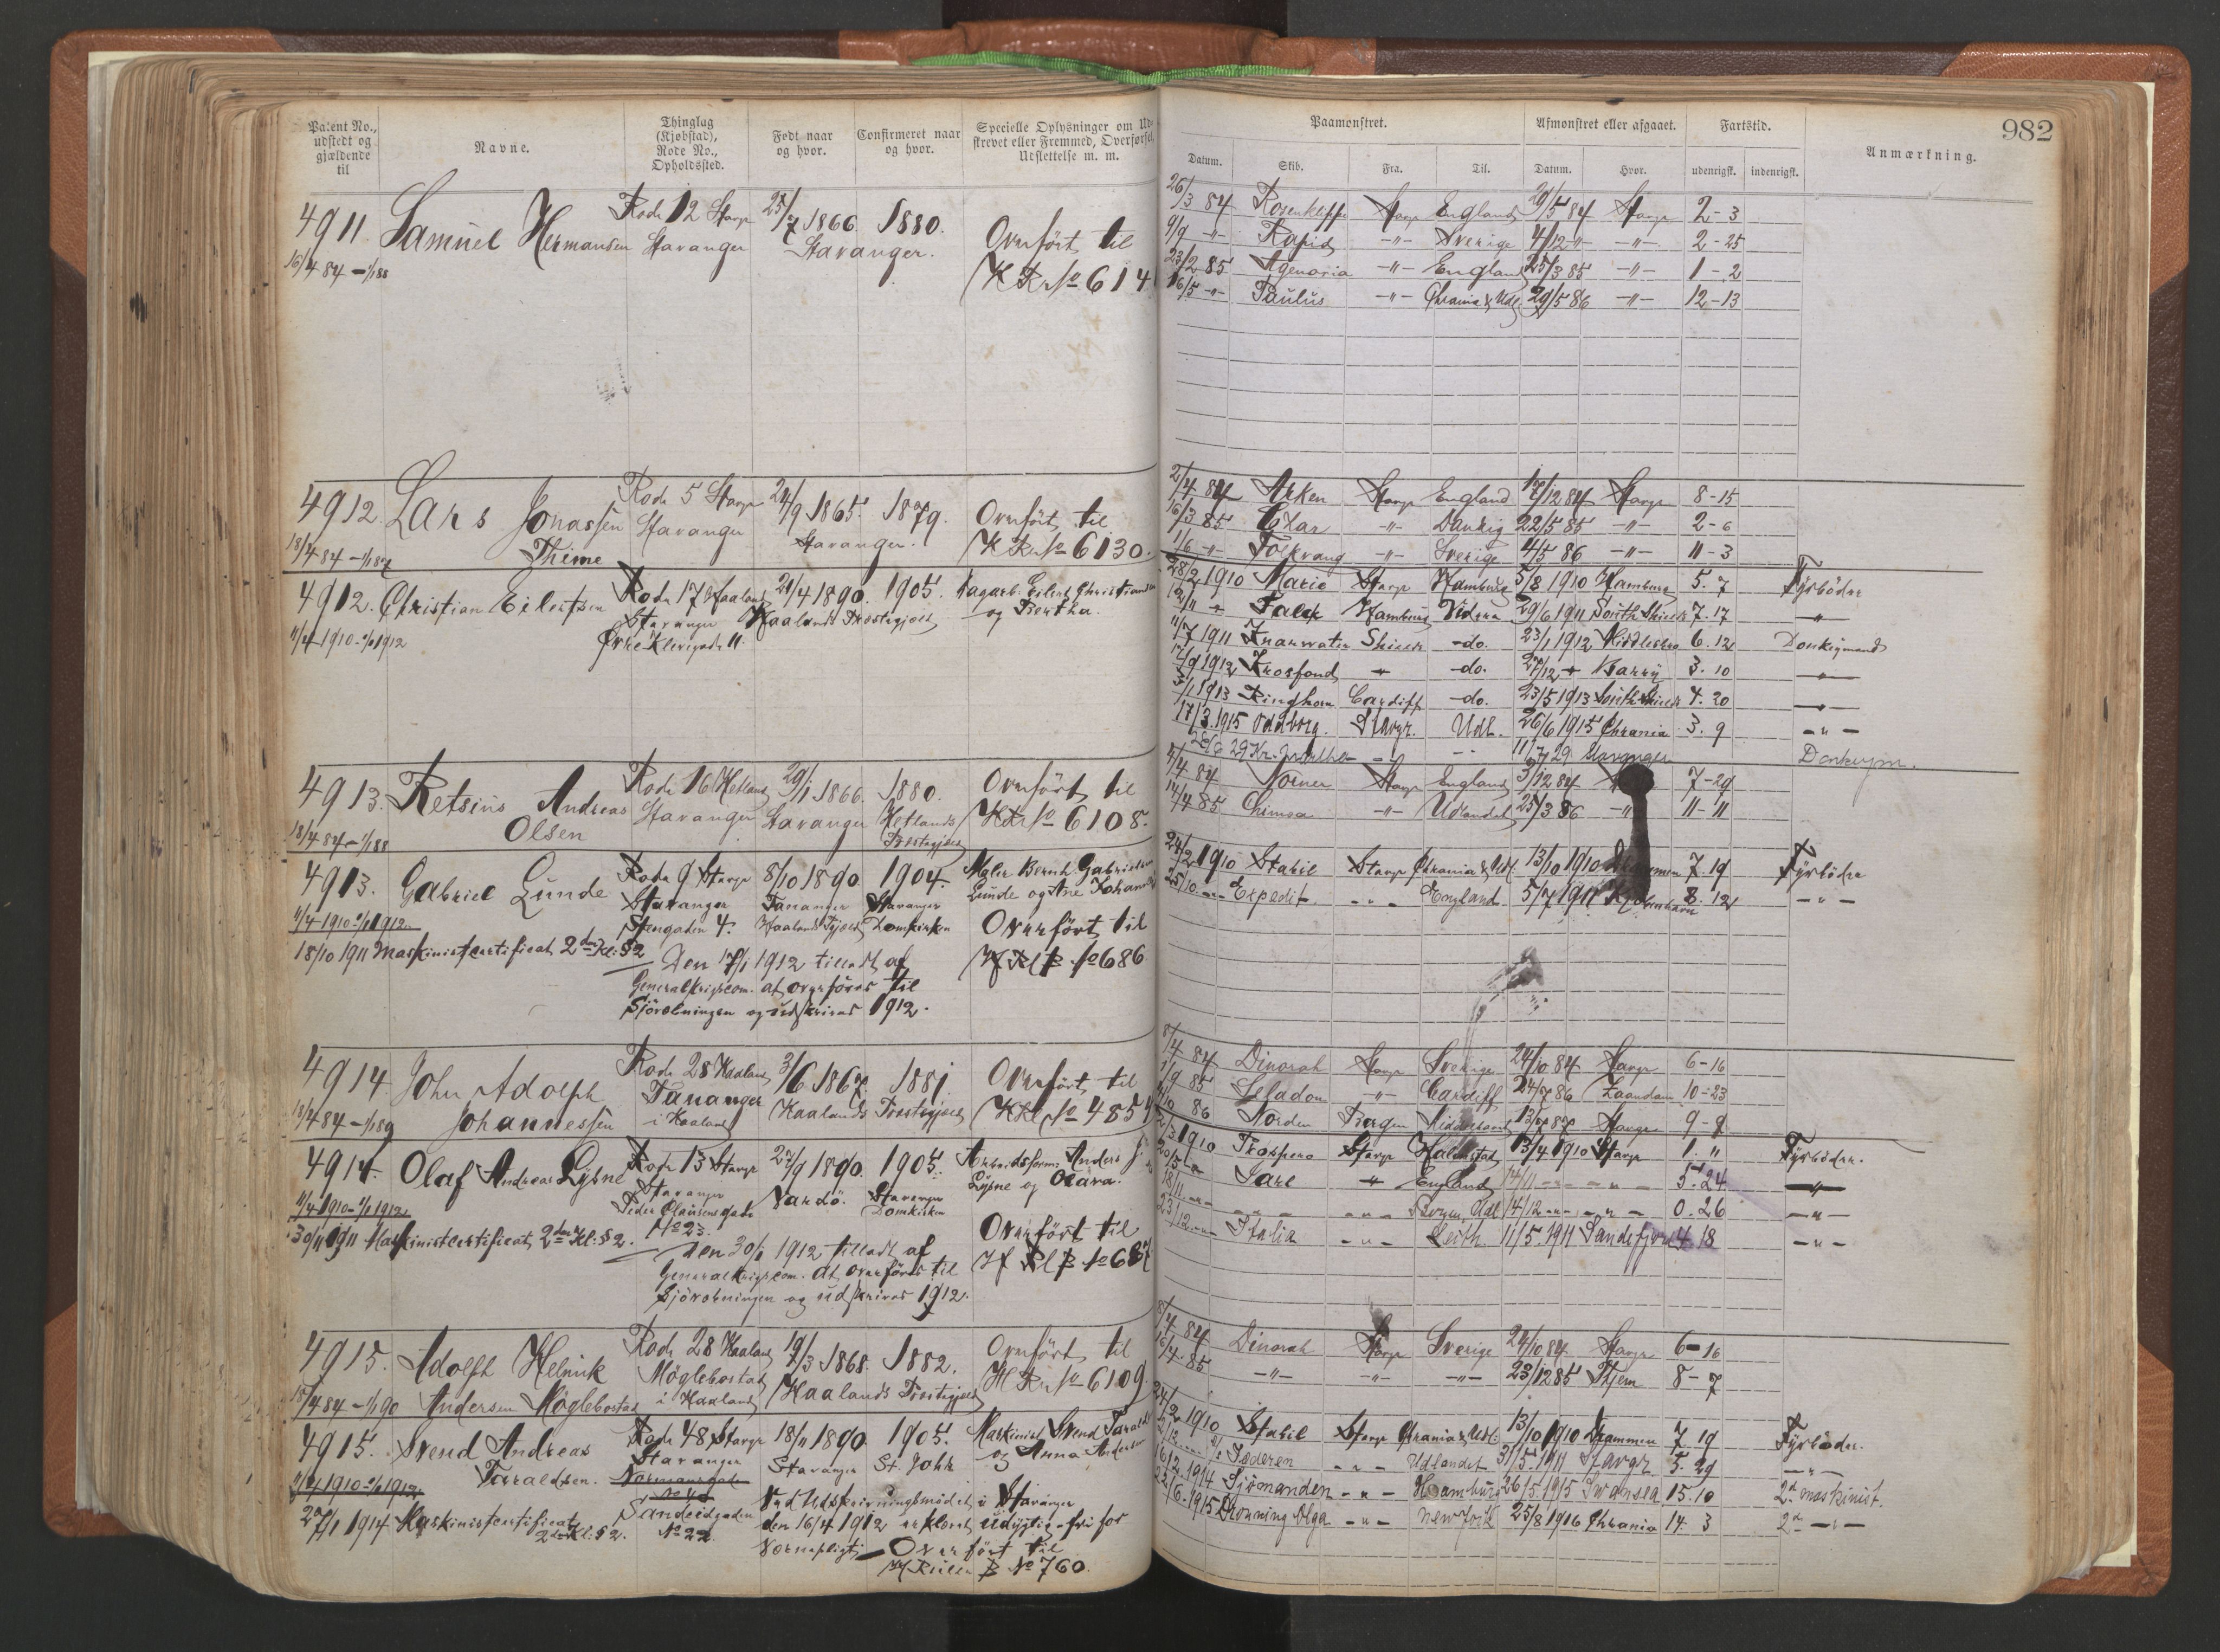 982
Patent No., udstedt og gjældende til
Navne.
Thinglag (Kjøbstad), Rode No., Opholdssted.
Født naar og hvor.
Confirmeret naar og hvor.
Specielle Oplysninger om Ud- strevet eller Fremmed, Overførsel, Udslettelse m. m.
Paamønstret.
Afmønstret eller afgaaet.
Fartstid.
Anmærkning.
Datum. Skib. Fra. Til. Datum. Hvor. udenrigsk. indenrigsk.
4911. Samuel Hermansen Rode 12 Stavgr 25/7 1866. 1880. Overført til
16/4 84 – 1/1 88 Stavanger Stavanger. H R No 614
26/3 84 Stavgr England 29/5 84 Stavgr 2 – 3
9/9 –"– Rapid –"– Sverige 4/12 –"– –"– 2 – 25
23/2 85 Agenoria –"– England 25/3 85 –"– 1 – 2
16/5 –"– Paulus –"– Chrania & Udl 29/5 86 –"– 12 – 13
4912. Lars Jonassen Rode 5 Stavgr 24/9 1865. 1879. Overført til
18/4 84 – 1/1 87 Thime Stavanger Stavanger. No 6130.
2/4 84 Arken Stavgr England 84 Stavgr 8 – 15
16/3 85 –"– Danzig 22/5 85 –"– 2 – 6
1/6 –"– Folkvang –"– Sverige 4/5 86 –"– 11 – 3
4912. Christian Eilertsen Rode 17 Haaland 1890. 1905. Eilert Christiansen
11/4 1910 – 1/1 1912 Stavanger Haalands Præstegjæld og Bertha.
Øvre Klevegade 11.
28/2 1910 Marie Stavgr Hamburg 5/8 1910 Hamburg 5. 7 Fyrbøder
Falck Hamburg Videre 29/6 1911 South Shields 7. 17 –"–
11/7 1911 Shields –do. 23/1 1912 Middlesbro 6. 12 Donkeymand
1912 Krosfond –do. 27/12 Barry 3. 10
3/1 1913 Ringhorn Cardiff –do. 23/5 1913 South Shields 4. 20
17/3. 1915 Oddborg. Stavgr. Udl. 26/6 1915 Chrania 3. 9 –"–
29 11/7 29 Stavanger Donkeym.
4913. Retsius Andreas Rode 16 Hetland 29/1 1866. 1880. Overført til
18/4 84 – 1/1 88 Olsen Stavanger Stavanger Hetlands Præstegjæld No 6108.
4/4 84 Norner Stavgr England 3/12 84 7 – 29
14/4 85 –"– Udlandet 25/3 86 –"– 11 – 11
4913. Gabriel Lunde Rode 9 Stavgr 8/10 1890 1904. Maler Bernh. Gabrielsen
11/4 1910 – 1/1 1912 Stavanger Tananger Stavanger Lunde og Ane Johanne
Stengaden 4. Haalands Pgjæld Domkirken Overført til
18/10 1911 Maskinistcertificat 2den Kl: § 2 No 686
Den 17/1 1912 tilladt af
Generalkrigscom. at overføres til
Sjørolningen og udskrives 1912.
24/2 1910 Stabil Stavgr Chrania & Udl. 13/10 1910 Drammen 7. 19 Fyrbøder
25/10 –"– Expedit –"– England 5/7 1911 Kjøbenhavn 8. 12 –"–
4914. John Adolph Rode 28 Haaland 3/6 1867. 1881 Overført til
18/4 84 – 1/1 89 Johannessen Tananger i Haaland Haalands Præstegjæld No 4854
8/4 84 Dinorah Stavgr Sverige 24/10 84 Stavgr 6 – 16
85 Seladon –"– Cardiff 86 Zaandam 10 – 23
86 Norden Bergen 87 Stavanger 9 –
4914. Olaf Andreas Lysne Rode 13 Stavgr 1890. 1905. Arbeidsform. Anders
11/4 1910 – 1/1 1912 Stavanger Vardö. Stavanger Domkirken Lysne og Olava.
Peder Clausens gade No 23. Overført til
30/11 1911 Maskinistcertificat 2den Kl: § 2. No 687
Den 30/1 1912 tilladt af
Generalkrigscom. at overføres til
Sjørolningen og udskrives 1912.
1910 Prospero Stavgr Halmstad 13/4 1910 Stavgr 1. " Fyrbøder.
Jarl England 14/11 –"– –"– 5. 24
18/11 –"– –"– –"– Bergen, Udl 14/12 –"– –"– 0. 26 –"–
23/12 –"– Italia –"– Leith 11/5. 1911 Sandefjord 4. 18 –"–
4915. Adolph Helmik Rode 28 Haaland 19/3 1868. 1882. Overført til
18/4 84 – 1/1 90 Andersen Møglebostad Møglebostad i Haaland Haalands Præstegjæld No 6109
8/4 84 Dinorah Stavgr Sverige 24/10 84 Stavgr 6 – 16
85 –"– –"– –"– 23/12 85 Hjem 8 – 7
4915. Svend Andreas Rode 48 Stavgr 18/11 1890. 1905. Maskinist Svend Taraldsen
11/4 1910 – 1/1 1912 Taraldsen. Stavanger Stavanger St. Joh. og Anna Andersen
Normansgade
Sandeidgaden No 22
1914 Maskinistcertificat 2den Kl: § 2.
Ved Udskrivningsmødet i Stavanger
den 16/4 1912 erklæret udygtig – fri for
Værnepligt – Overført til
Rullen B No 760.
24/2 1910 Stabil Stavgr Chrania & Udl. 13/10 1910 Drammen 7. 19 Fyrbøder.
Jæderen –"– Udlandet 31/5. 1911 Stavgr. 5. 29 –"–
1914 Sjömanden –"– Hamburg 26/5. 1915 Swansea 15. 10 2den maskinist.
1915 Dronning Olga –"– New York 25/8 1916 Chrania 14. 3 2den –"–